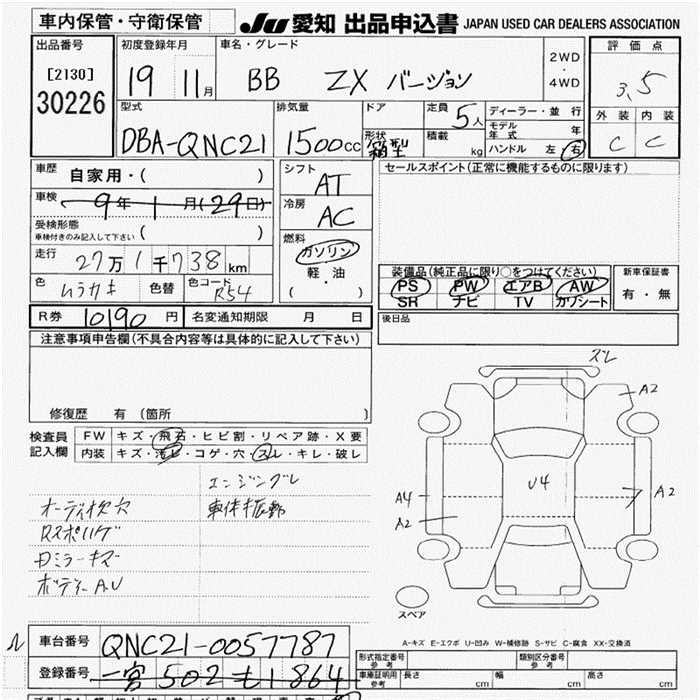 車内保管・守衛保管
JU 愛知 出品申込書 JAPAN USED CAR DEALERS ASSOCIATION
出品番号
[2130]
30226
初度登録年月
19 11月
車名・グレード
BB ZX バージョン
2WD
・
4WD
評価点
3.5
外装 内装
C C
型式
DBA-QNC21
排気量
1500cc
ドア
形状
箱型
定員
5人
積載
kg
ディーラー・並行
モデル年式 年
ハンドル 左 右
車歴
自家用・( )
車検
9年 1月(29日)
受検形態
車検付きのみ記入して下さい ( )
走行
27万1千738km
色
ムラサキ
色替
色コード
R54
シフト
AT
冷房
AC
燃料
ガソリン
軽・油
( )
セールスポイント(正常に機能するものに限ります)
装備品(純正品に限り○をつけてください)
PS PW エアB AW
SR ナビ TV カワシート
新車保証書
有・無
R券 10190円
名変通知期限 月 日
後日品
注意事項申告欄(不具合内容等は具体的に記入して下さい)
修復歴 有(箇所 )
検査員
記入欄
FW キズ・飛石・ヒビ割・リペア跡・X要
内装 キズ・汚れ・コゲ・穴・スレ・キレ・破レ
エンジンブレ
オーディオ欠穴 車体振動
Rスポハゲ
Dミラーキズ
ボディーA.U
スレ
A2
U4
A4
A2
A2
スペア
A-キズ E-エクボ U-凹み W-補修跡 S-サビ C-腐食 XX-交換済
車台番号 QNC21-0057787
登録番号 一宮 502 も1864
形式指定番号
参考
類別区分番号
参考
車庫証明用
参考
長さ cm
幅 cm
高さ cm